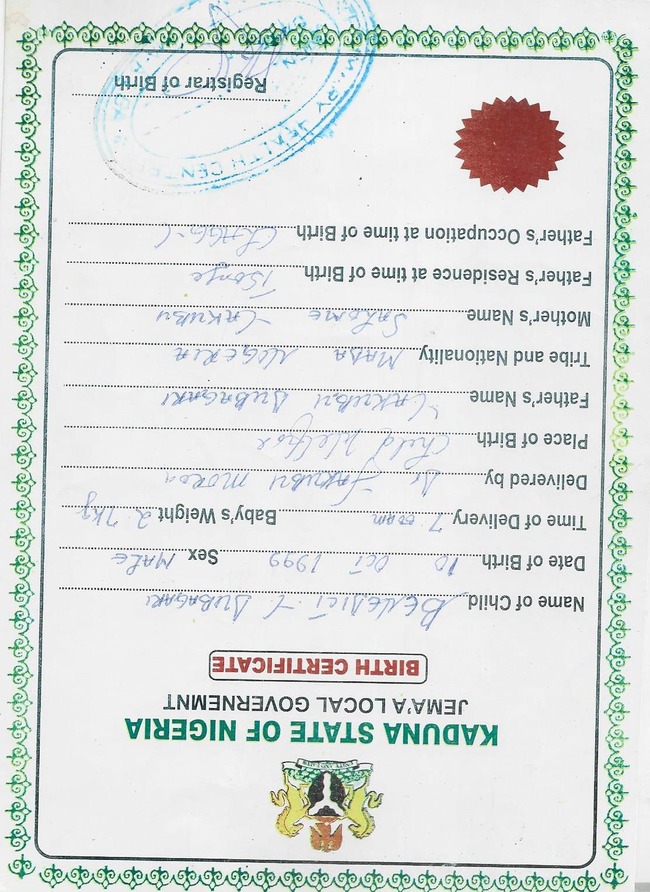 KADUNA STATE OF NIGERIA
JEMA'A LOCAL GOVERNEMNT
BIRTH CERTIFICATE
Name of Child BENEDICT Y DUBAGARI
Date of Birth 10 OCT 1999 Sex MALE
Time of Delivery 7:00am Baby's Weight 2.7kg
Delivered by Dr YAKUBU
Place of Birth Child Welfare
Father's Name YAKUBU DUBAGARI
Tribe and Nationality MADA NIGERIA
Mother's Name SALOME YAKUBU
Father's Residence at time of Birth
Father's Occupation at time of Birth
Registrar of Birth
HEALTH CENTER